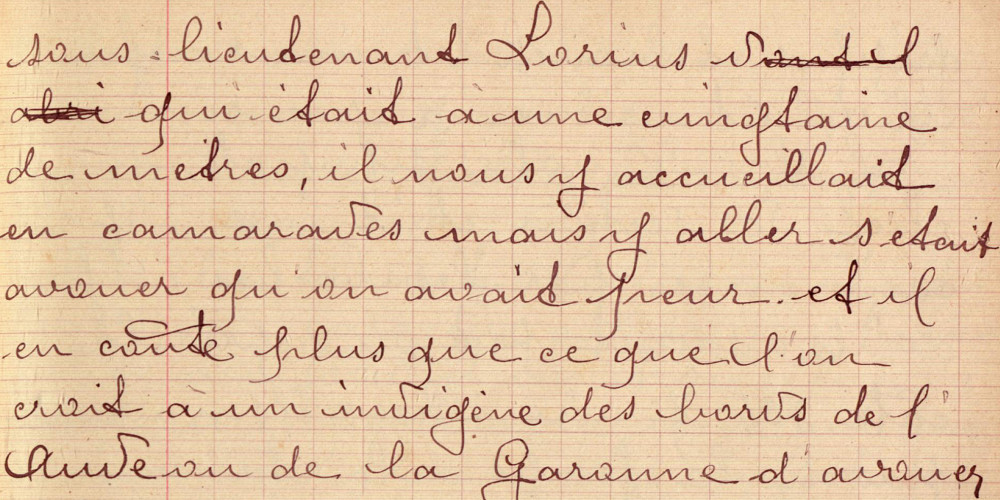 sous-lieutenant Lorius
qui était à une vingtaine
de mètres, il nous y accueillait
en camarades mais y aller s'était
avouer qu'on avait peur. et il
en coûte plus que ce que l'on
croit à un indigène des bords de l'
Aude ou de la Garonne d'avouer